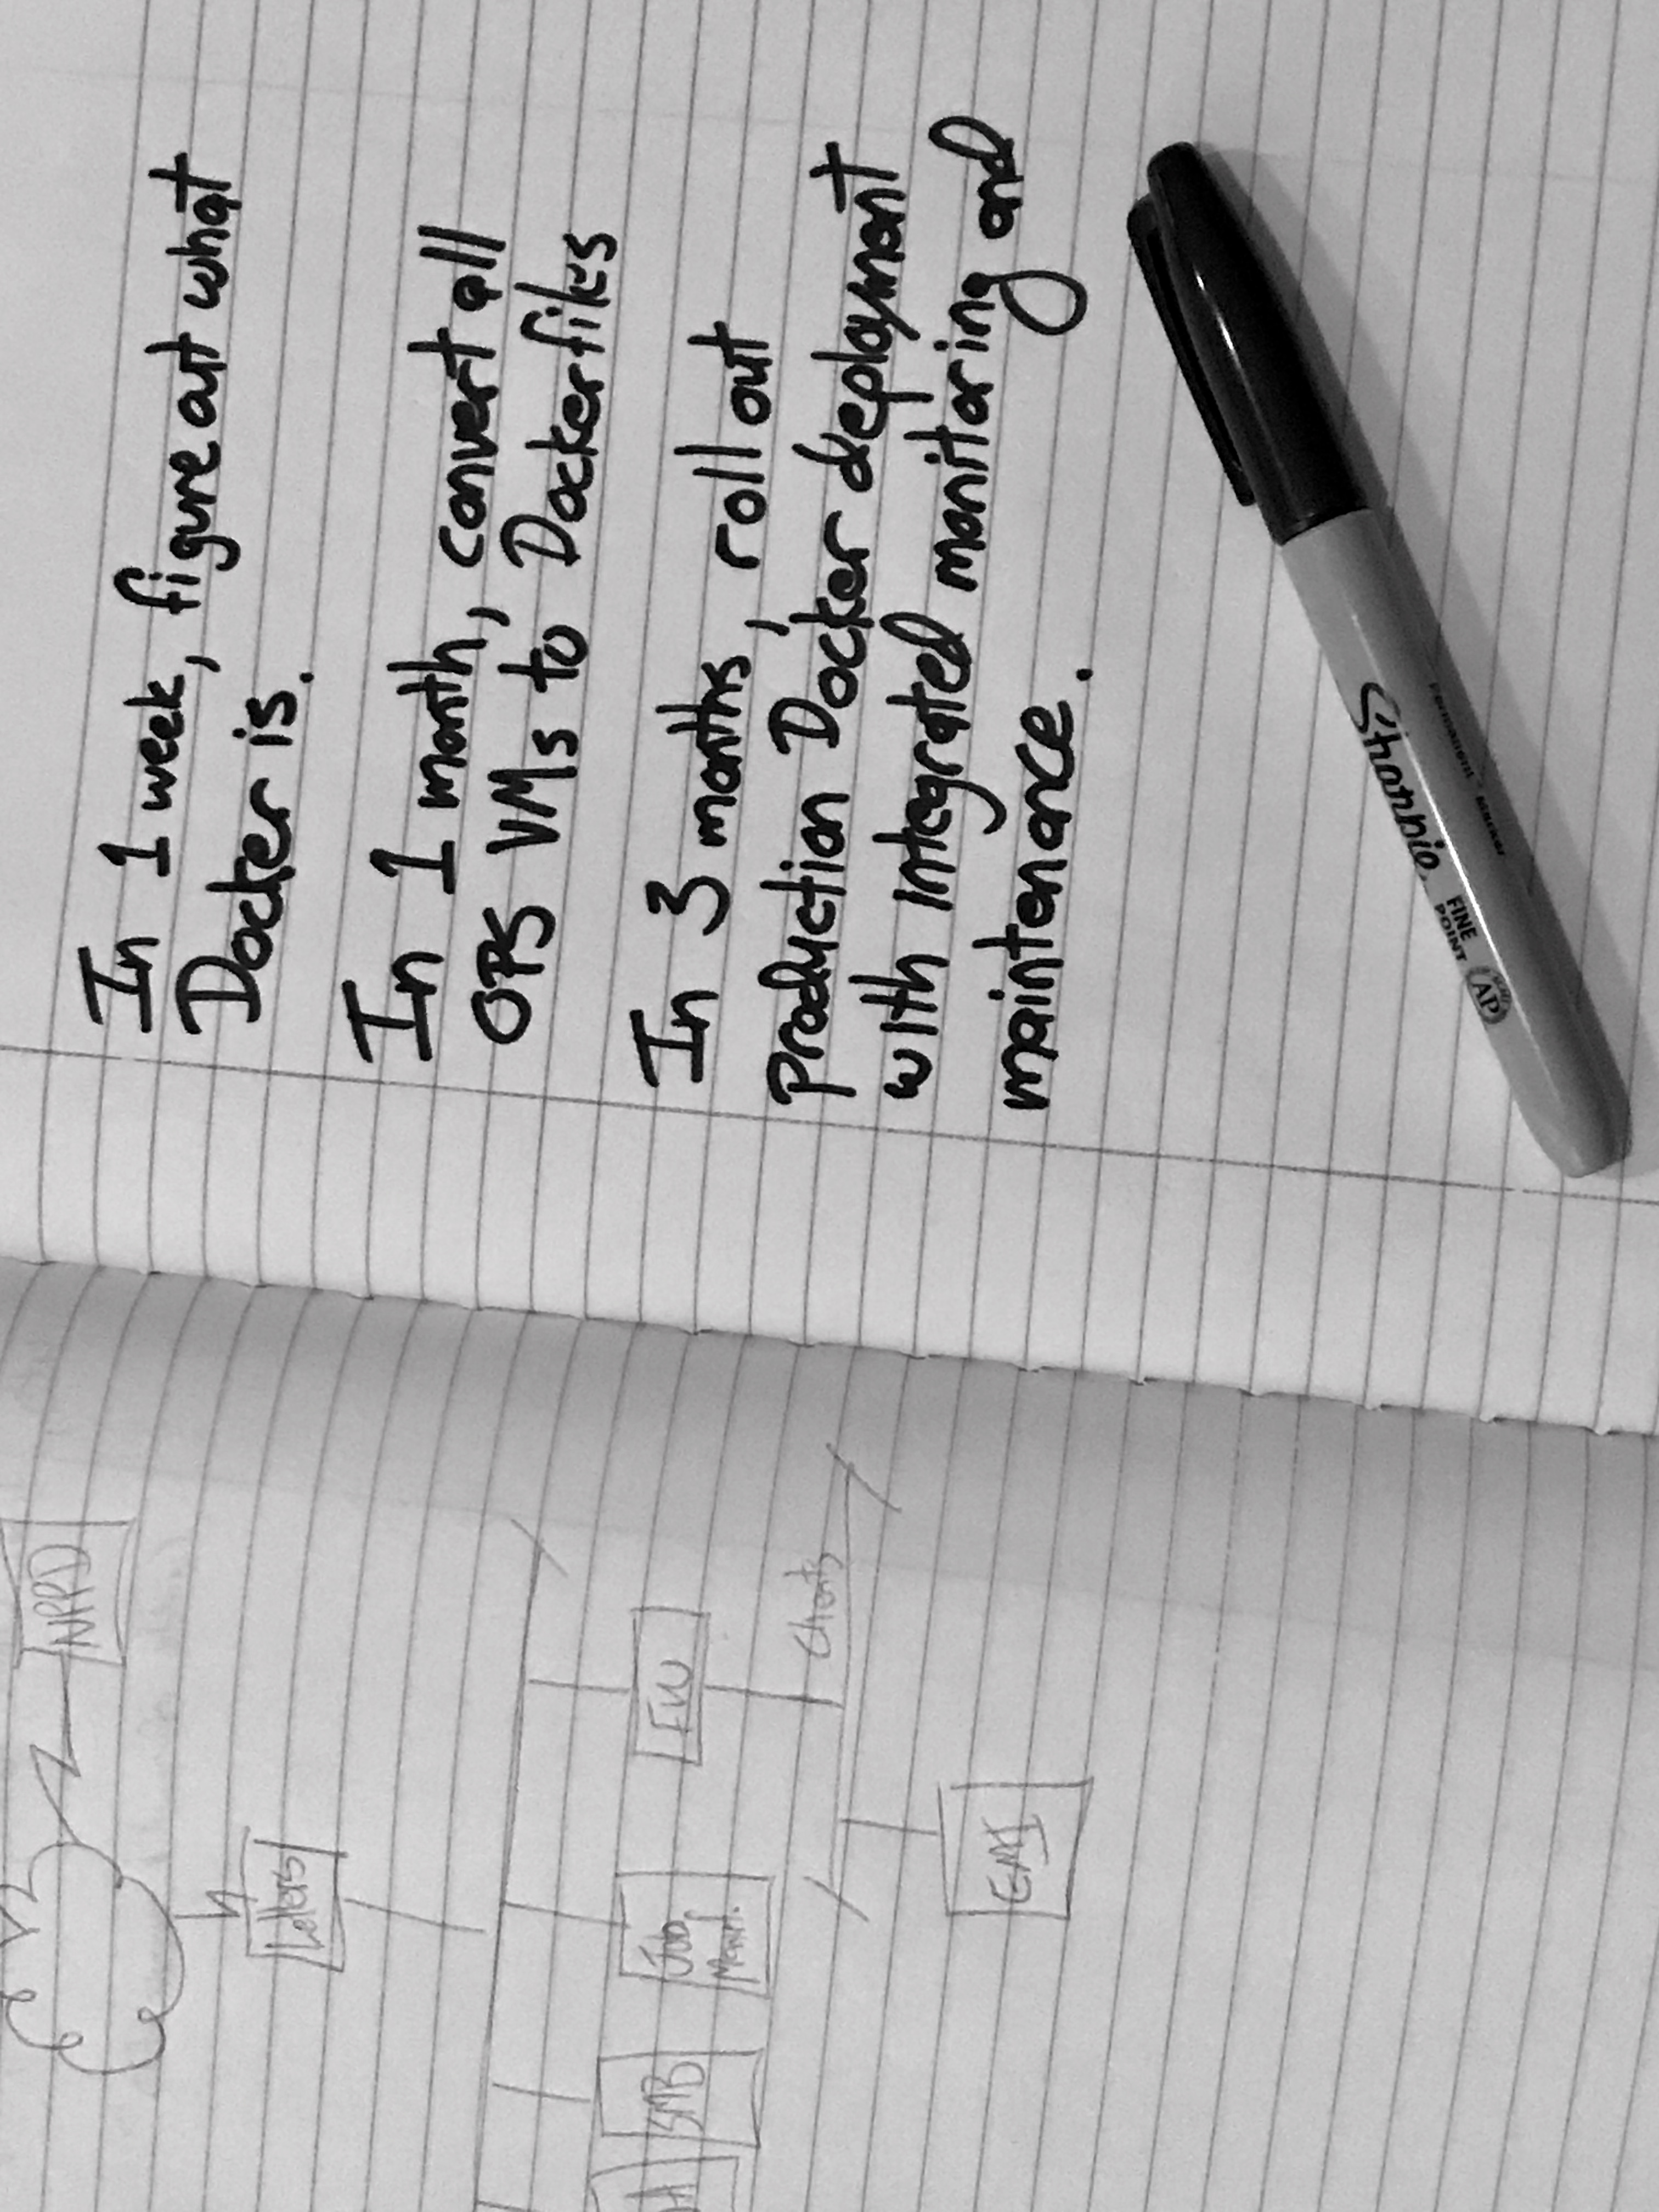 In 1 week, figure out what
Docker is.
In 1 month, convert all
OPS VMs to Dockerfiles
In 3 months, roll out
production Docker deployment
with integrated monitoring and
maintenance.
Sharpie
Permanent Marker
FINE
POINT
AP
NPPD
FW
Clients
Job
SMB